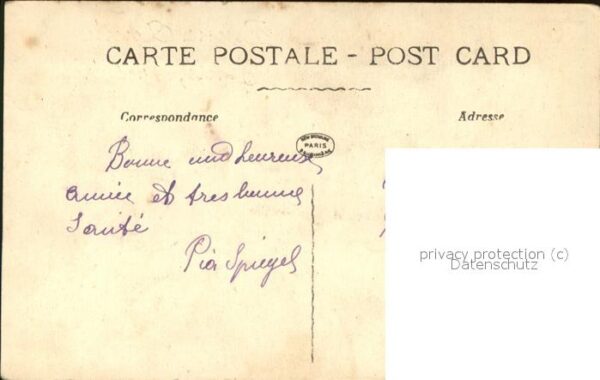 CARTE POSTALE - POST CARD
Correspondance
Adresse
PARIS
Bonne und heureuse
année et tres bonne
Santé
Pia Spiegel
privacy protection (c)
Datenschutz